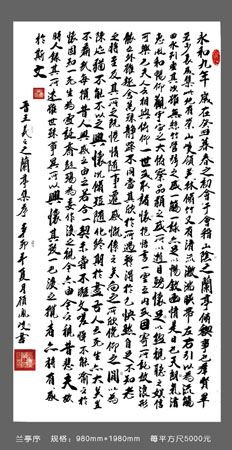 永和九年歲在癸丑暮春之初會于會稽山陰之蘭亭修禊事也群賢畢
至少長咸集此地有崇山峻領茂林修竹又有清流激湍映帶左右引以為流觴
曲水列坐其次雖無絲竹管弦之盛一觴一詠亦足以暢敘幽情是日也天朗氣清
惠風和暢仰觀宇宙之大俯察品類之盛所以遊目騁懷足以極視聽之娛信
可樂也夫人之相與俯仰一世或取諸懷抱悟言一室之內或因寄所託放浪形
骸之外雖趣舍萬殊靜躁不同當其欣於所遇暫得於己快然自足不知老
之將至及其所之既倦情隨事遷感慨係之矣向之所欣俯仰之間以為
陳迹猶不能不以之興懷況修短隨化終期於盡古人云死生亦大矣豈
不痛哉每攬昔人興感之由若合一契未嘗不臨文嗟悼不能喻之於
懷固知一死生為虛誕齊彭殤為妄作後之視今亦由今之視昔悲夫故列敘
時人錄其所述雖世殊事異所以興懷其致一也後之攬者亦將有感
於斯文
晉王羲之蘭亭集序 辛卯年夏月 書
兰亭序 规格：980mm×1980mm 每平方尺5000元